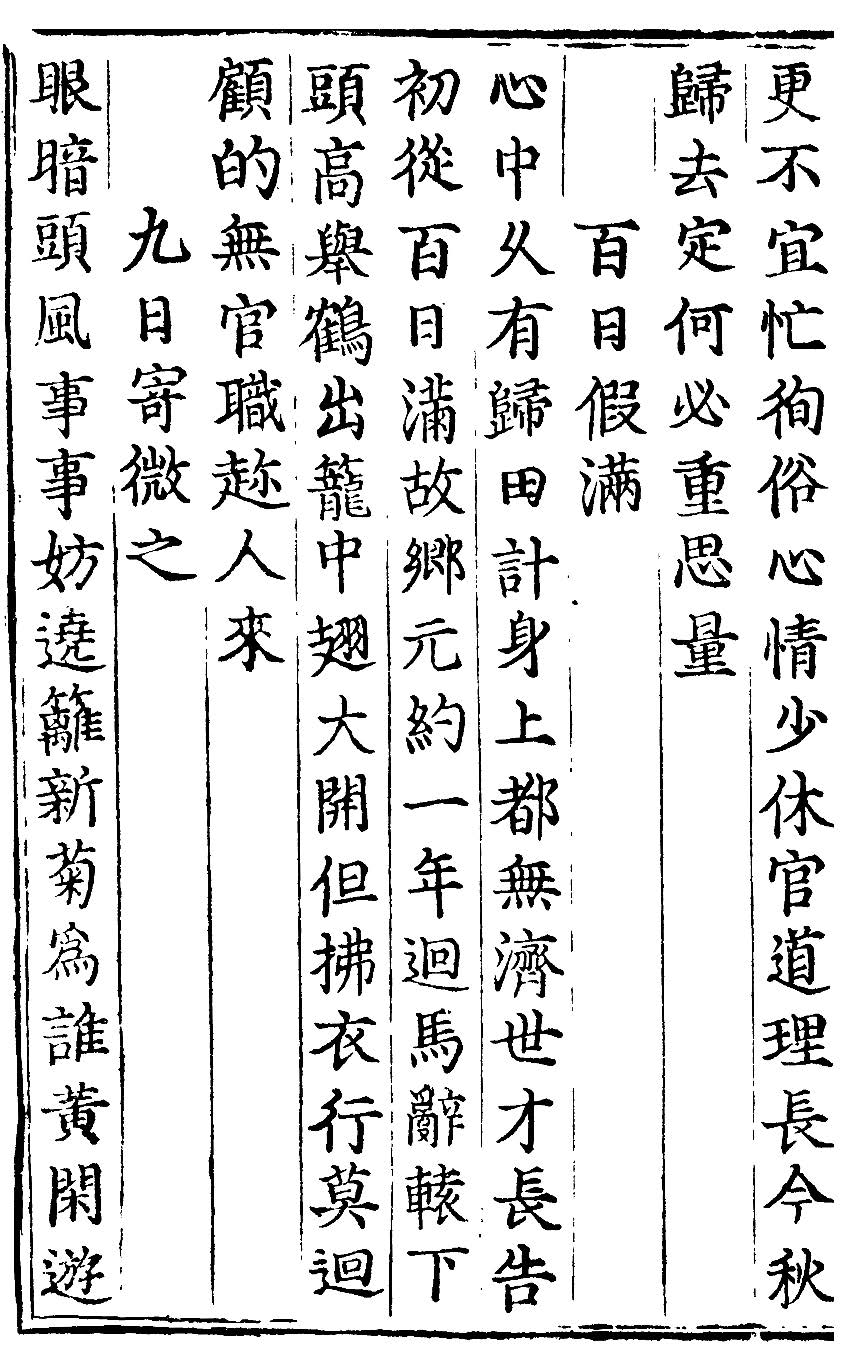 更不宜忙徇俗心情少休官道理長今秋
歸去定何必重思量
百日假滿
心中乆有歸田計身上都無濟世才長告
初從百日滿故鄉元約一年迴馬辭轅下
頭高舉鶴出籠中翅大開但拂衣行莫迴
顧的無官職趂人來
九日寄微之
眼暗頭風事事妨遶籬新菊爲誰黃閑遊